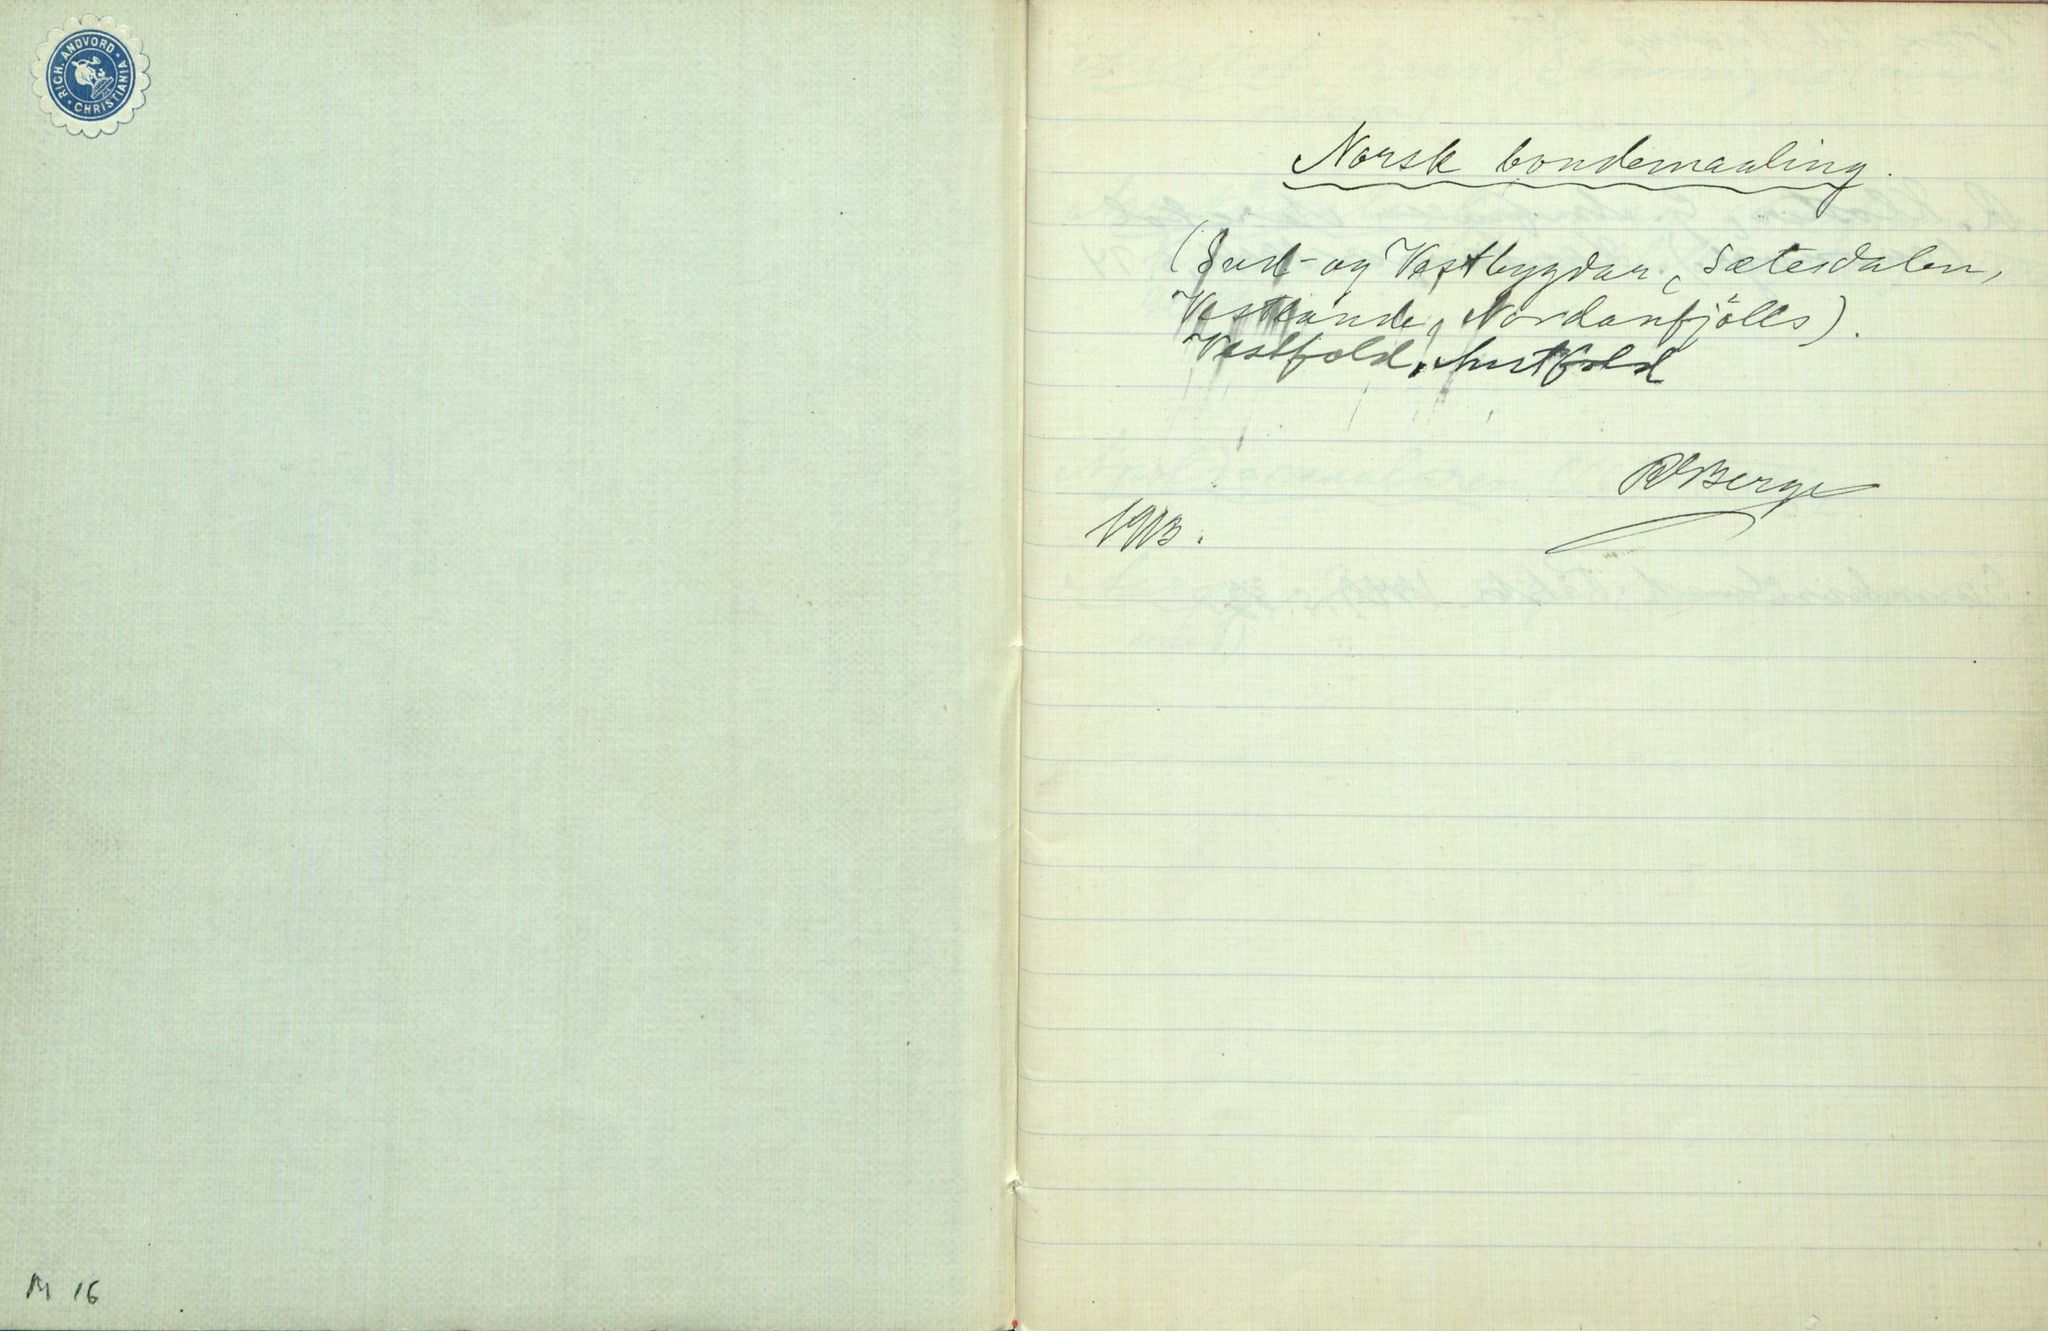 RICH. ANDVORD · CHRISTIANIA ·
M 16
Norsk bondemaaling.
(Sud- og Vestbygdar, Sætesdalen,
Vestlande, Nordanfjölls).
Vestfold, Austfold
RBerge
1913.